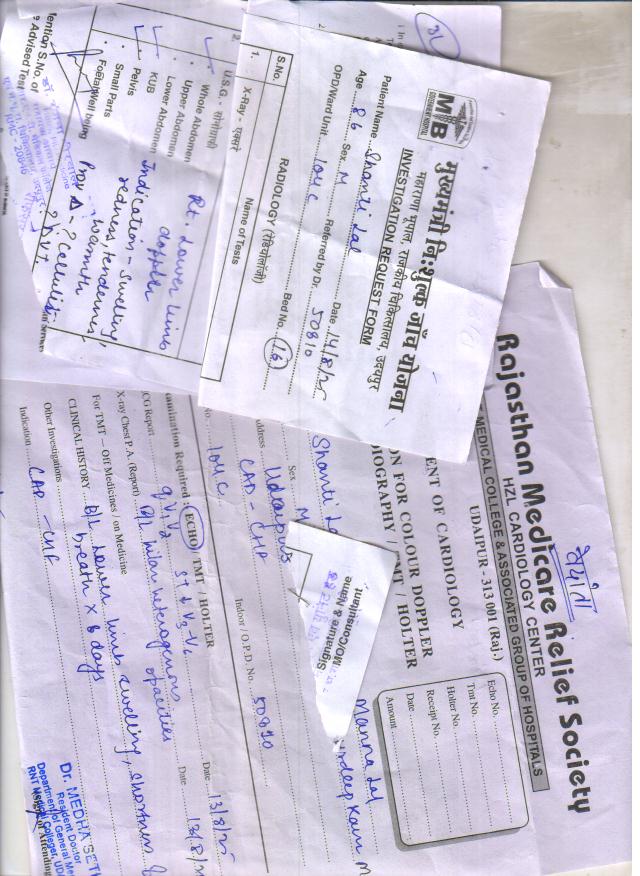 मुख्यमंत्री नि:शुल्क जाँच योजना
महाराणा भूपाल राजकीय चिकित्सालय, उदयपुर
INVESTIGATION REQUEST FORM
Patient Name Shanti Lal Date 14/8/25
Age 86 Sex M Referred by Dr.
OPD/Ward Unit 104 C 50810 Bed No. 16
S.No. Name of Tests
RADIOLOGY (रेडियोलॉजी)
1. X-Ray - एक्सरे
2. U.S.G. - सोनोग्राफी
Whole Abdomen
Upper Abdomen
Lower Abdomen
KUB
Pelvis
Small Parts
Foetal well being
Rt. Lower Limb
doppler
Indication - Swelling
redness, tenderness
warmth
Prov Δ - ? Cellulitis
? DVT
Rajasthan Medicare Relief Society
HZL CARDIOLOGY CENTER
MEDICAL COLLEGE & ASSOCIATED GROUP OF HOSPITALS
UDAIPUR - 313 001 (Raj.)
ENT OF CARDIOLOGY
ON FOR COLOUR DOPPLER
DIOGRAPHY / TMT / HOLTER
Echo No.
Tmt No.
Holter No.
Receipt No.
Date
Amount
Shanti La
Manna Lal
Sex M
Udaipur
CAD - CHF
104 C Indoor / O.P.D. No. 50810
Date 13/8/25
amination Required : ECHO / TMT / HOLTER
Date
CG Report q V1 V2 ST ↓ V3-V6
X-ray Chest P.A. (Report) B/L hilar heterogenous opacities
For TMT - Off Medicines / on Medicine
CLINICAL HISTORY B/L Lower limb swelling, shortness of
breath x 8 days
Other Investigations
Indication CAD - CHF
Signature & Name
MO/Consultant
Dr. MEDHA SETH
Resident Doctor
Department of General Me
RNT Medical College, UD